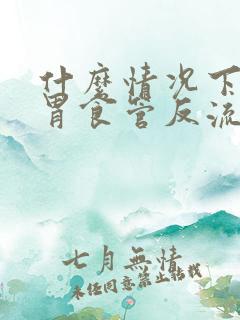 什麼情况下
胃食管反流
七月無情
未经同意禁止转载